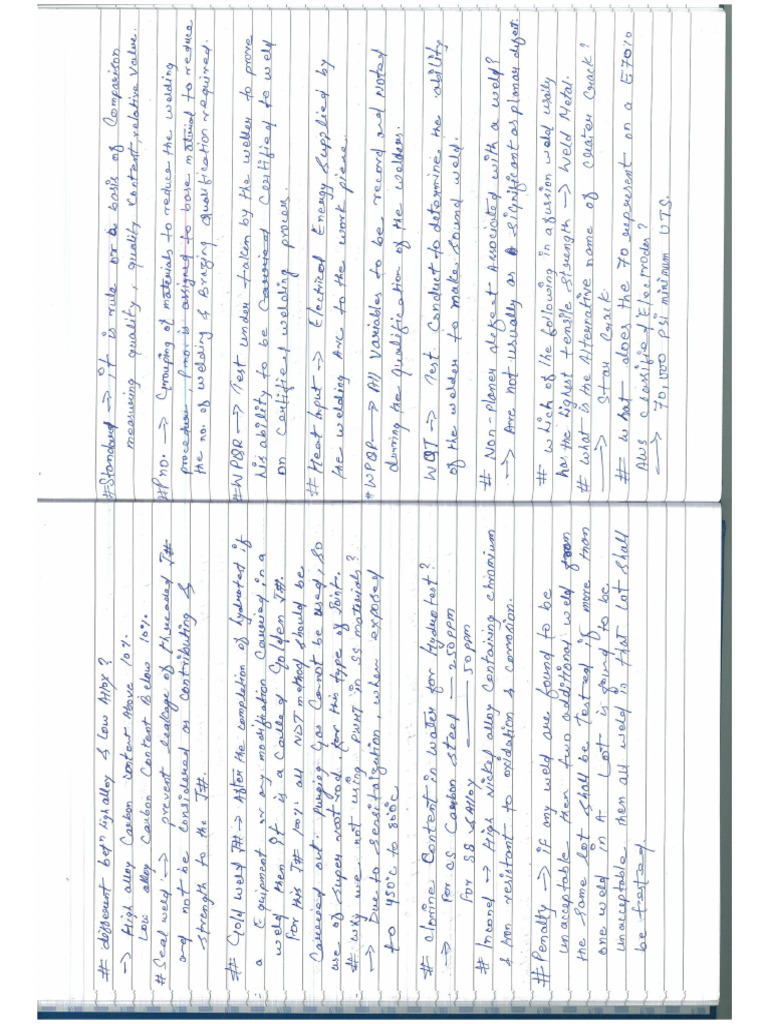 # different betⁿ high alloy & low Alloy?
→ High alloy Carbon content Above 10%.
Low alloy Carbon Content Below 10%.
# Seal weld → prevent leakage of threaded J#
and not be considered as contributing &
strength to the J#.
# Gold weld J# → After the completion of hydrotest if
a Equipment or any modification Carried in a
weld then It is a Called Golden J#.
For this J# 100% all NDT method should be
Carried out. Purging Gas Cannot be used, so
use of super root rod, for this type of Joint.
# why we not using PWHT in SS materials?
→ Due to Sensitaization, when exposed
to 450°C to 850°C
# Clorine Content in water for Hydrotest?
→ For CS Carbon steel — 250 ppm
For SS & Alloy — 50 ppm
# Inconel → High Nickel alloy Containing chromium
& Iron resistant to oxidation & Corrosion.
# Penalty → if any weld are found to be
unacceptable then two additional weld from
the same lot shall be tested if more than
one weld in A Lot is found to be
unacceptable then all weld in that lot shall
be tested
# Standard → it is rule or a basis of Comparison
measuring quality, quality content, relative value.
# P no. → Grouping of materials to reduce the welding
procedure, P no. is assigned to base material to reduce
the no. of welding & Brazing Qualification required.
# WPQR → Test under taken by the welder to prove
his ability to be Carried Certified to weld
on Certified welding process.
# Heat Input → Electrical Energy Supplied by
the welding Arc to the work piece.
# WPQR → All Variables to be record and Noted
during the Qualification of the welders.
WQT → Test Conduct to determine the ability
of the welder to make Sound weld.
# Non-Planer defect Associated with a weld?
→ Are not usually as significant as planar defect.
# which of the following in a fusion weld usally
has the highest tensile Strength → Weld Metal.
# what is the Alternative name of Crater Crack?
→ Star Crack.
# what does the 70 represent on a E70%
AWS classified Electrodes?
→ 70,000 PSI minimum UTS.